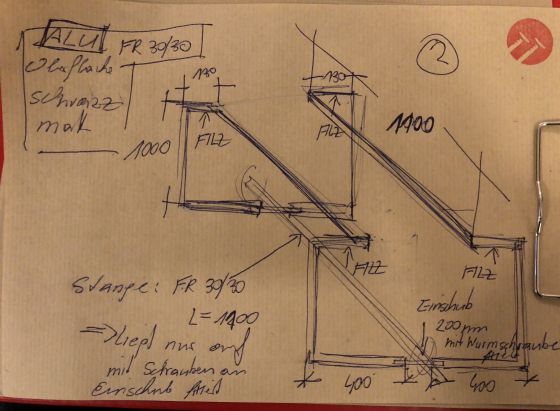 ALU FR 30/30
Oberfläche
schwarz
matt
2
130
130
FILZ
FILZ
1000
1100
FILZ
FILZ
Stange: FR 30/30
L = 1100
=> liegt nur auf
mit Schrauben an
Einschub
Einschub
200 mm
mit Wurmschraube
400
400